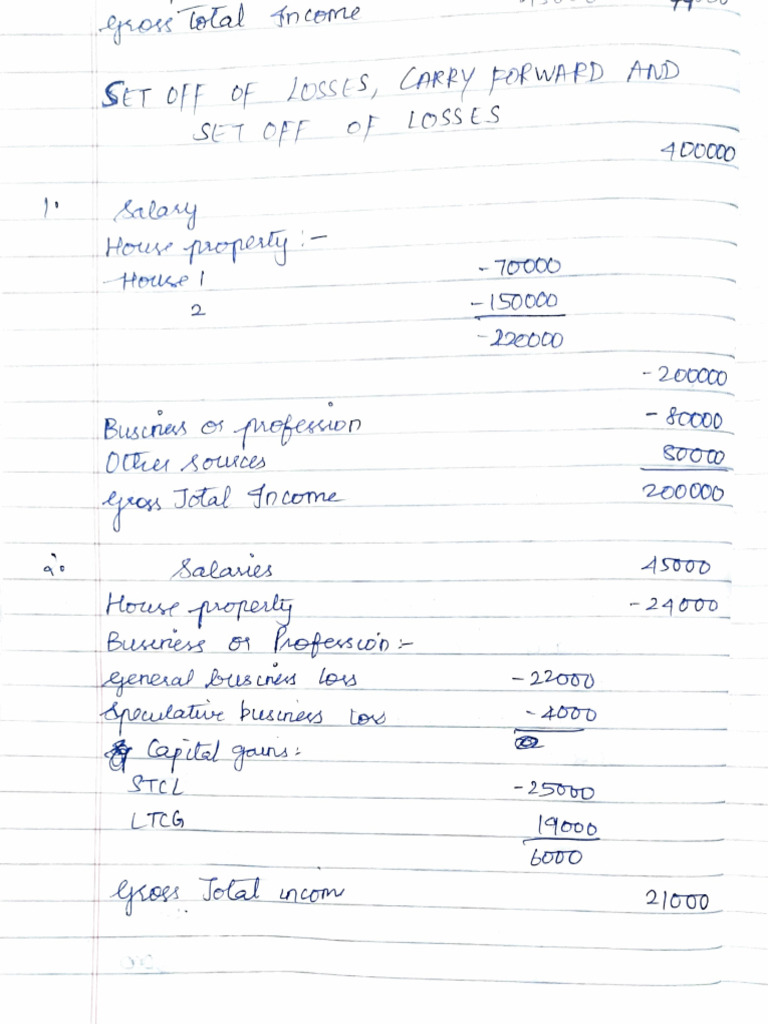 Gross Total Income
SET OFF OF LOSSES, CARRY FORWARD AND
SET OFF OF LOSSES
400000
1. Salary
House property :-
House 1 -70000
2 -150000
-220000
-200000
Business or profession -80000
Other sources 80000
Gross Total Income 200000
2. Salaries 45000
House property -24000
Business or Profession :-
General business loss -22000
Speculative business loss -4000
Capital gains :
STCL -25000
LTCG 19000
6000
Gross Total incom 21000